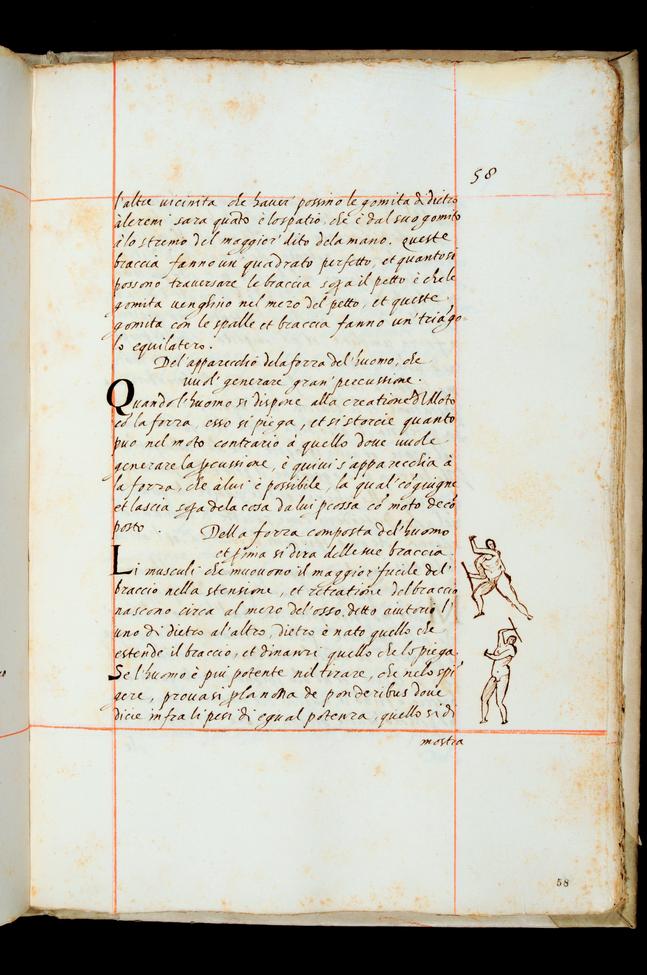 58
l'altre uicinita che haver' possino le gomita di dietro
à le reni sara quãto è lo spatio, che è dal suo gomito
à lo stremo del maggior' dito dela mano. queste
braccia fanno un' quadrato perfetto, et quanto si
possono traversare le braccia sopra il petto è che le
gomita venghino nel mezo del petto, et queste
gomita con le spalle et braccia fanno un' triãgo-
lo equilatero.
Del' apparecchio dela forza del' huomo, che
uuol' generare gran' percussione.
Quando l'huomo si dispone alla creatione d'l Moto
cõ la forza, esso si piega, et si storcie quanto
puo nel moto contrario à quello doue uuole
generare la pcussione, è quivi s'apparecchia à
la forza, che à lui è possibile, la qual' cõgiugne
et lascia sopra dela cosa da lui pcossa cõ moto decõ
posto.
Della forza composta del' huomo
et pima si dira delle sue braccia.
Li musculi che muouono il maggior fucile del'
braccio nella stensione, et retratione del braccio
nascono circa al mezo del' osso detto aiutorio l'
uno di dietro al' altro, dietro è nato quello che
estende il braccio, et dinanzi quello che lo piega.
Se l'huomo è piu potente nel tirare, che nelo spi
gere, provasi p la nona de ponderibus doue
dicie infra li pesi di egual potenza, quello si di
mostra
58